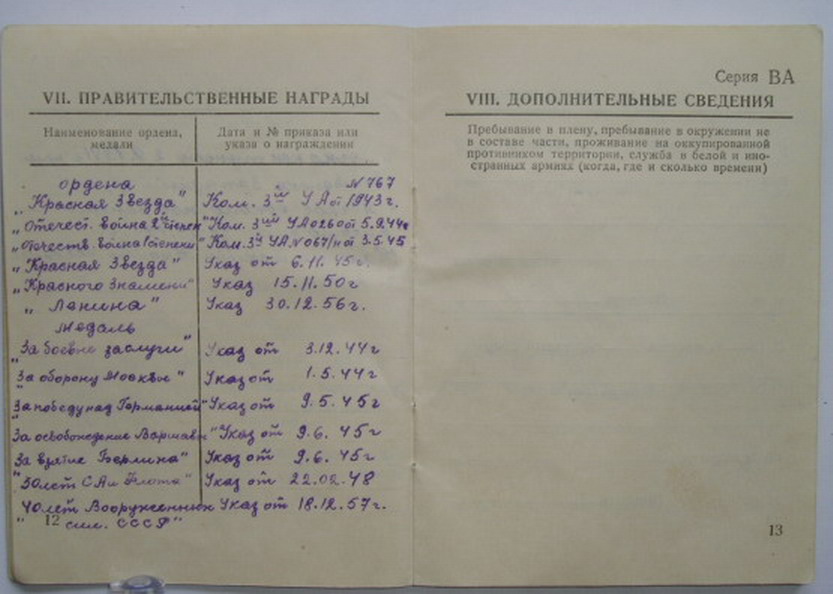 VII. ПРАВИТЕЛЬСТВЕННЫЕ НАГРАДЫ
Наименование ордена, медали
Дата и № приказа или указа о награждении
ордена N 767
„Красная Звезда" Ком. 3й УА от 1943 г.
„Отечест. война 2й степен" Ком. 3ий УА 026 от 5.9.44г
„Отечеств. война 1 степени" Ком 3й УА N 067/н от 3.5.45
„Красная Звезда" Указ от 6.11.45г.
„Красного Знамени" Указ 15.11.50г
„Ленина" Указ 30.12.56г.
Медаль
„За боевые заслуги" Указ от 3.12.44г
„За оборону Москвы" Указ от 1.5.44г
„За победу над Германией" Указ от 9.5.45г
„За освобождение Варшавы" Указ от 9.6.45г
„За взятие Берлина" Указ от 9.6.45г
"30 лет СА и Флота" Указ от 22.02.48
„40 лет Вооруженных Указ от 18.12.57г.
сил СССР"
12
Серия ВА
VIII. ДОПОЛНИТЕЛЬНЫЕ СВЕДЕНИЯ
Пребывание в плену, пребывание в окружении не
в составе части, проживание на оккупированной
противником территории, служба в белой и ино-
странных армиях (когда, где и сколько времени)
13